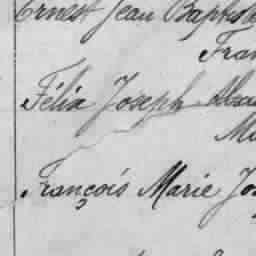 Ernest Jean Baptist
Fran
Félix Joseph Alex
Ma
François Marie Jos